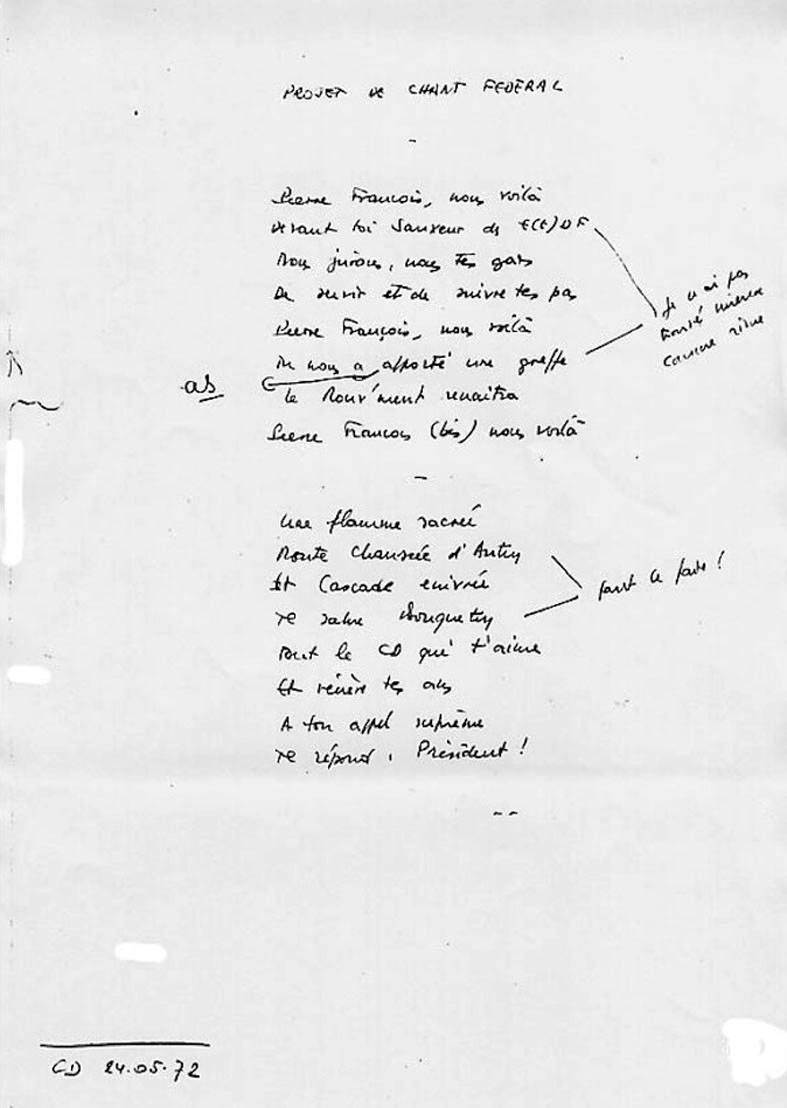 PROJET DE CHANT FEDERAL
-
Pierre François, nous voilà
Devant toi Sauveur des E(E)DF
Nous jurons, nous tes gars
De servir et de suivre tes pas
Pierre François, nous voilà
Tu nous a apporté une greffe
as
le Mouv'ment renaitra
Pierre François (bis) nous voilà
Je n'ai pas
trouvé mieux
comme rime
-
Une flamme sacrée
Monte Chaussée d'Antin
Et Cascade enivrée
Te salue Bouquetin
faut le faire !
Tout le CD qui t'aime
Et vénère tes ans
A ton appel suprême
Te répond, Président !
--
CD 24.05.72